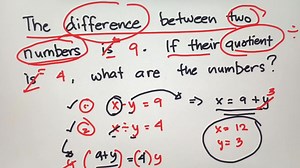 The difference between two
numbers is 9. If their quotient ÷
is 4, what are the numbers?
✓ ① x - y = 9 ⇒ x = 9 + y 3
✓ ② x ÷ y = 4 x = 12
y ( 9+y / y ) = (4) y y = 3